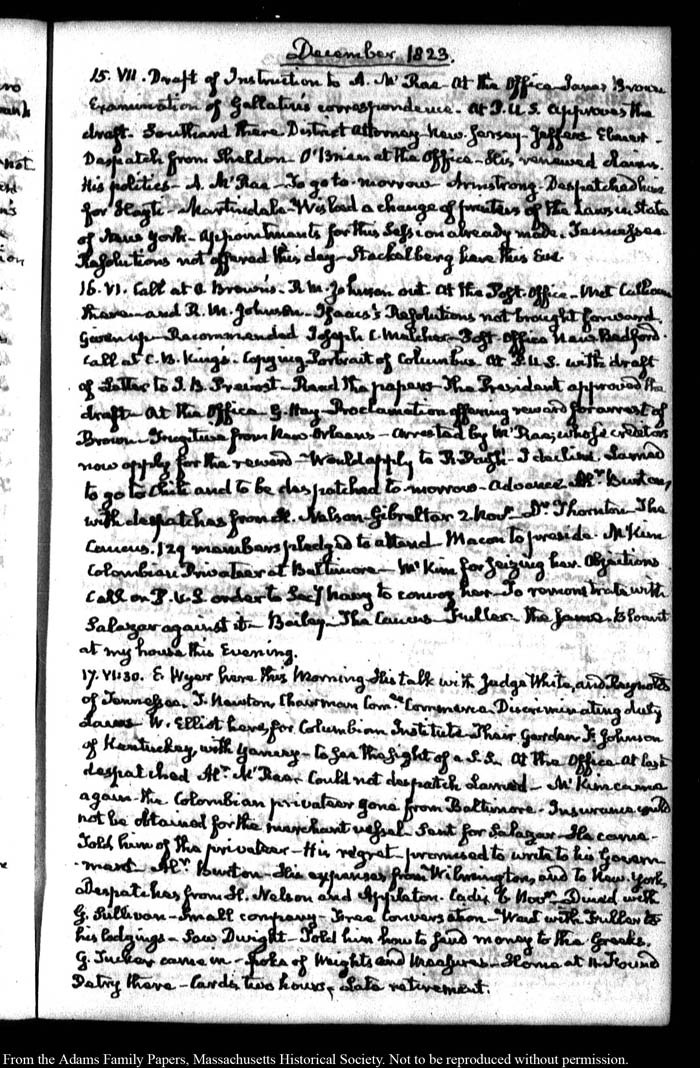 December 1823.
15. VII. Draft of Instruction to A. McRae. At the Office James Brown
Examination of Gallatin's correspondence. At P.U.S. Approves the
draft. Southard there. District Attorney New Jersey. Jeffers
Despatch from Sheldon. O'Brien at the Office. His renewed claims.
His politics. A. McRae. To go to-morrow. Armstrong. Despatched him
for Hayti. Martindale. Wished a change of printers of the Laws in State
of New York. Appointments for this Session already made. Tennessee
Resolutions not offered this day. Stackelberg here this Eve.
16. VI. Call at O Brown's. R. M. Johnson out. At the Post Office. Met Calhoun
there and R. M. Johnson. Isacks's Resolutions not brought forward.
Given up. Recommended Joseph C. Melcher Post Office New Bedford.
Call at C. B. King's. Copying Portrait of Columbus. At P.U.S. with draft
of Letter to J. B. Prevost. Read the papers. The President approved the
draft. At the Office. G. Hay. Proclamation offering reward for arrest of
Brown. Fugitive from New Orleans. Arrested by McRae, whose creditors
now apply for the reward. Would apply to R. I declined. Larned
to go to Chile and to be despatched to-morrow. Advance. Alr. Burton,
with despatches from H. Nelson Gibraltar 2 Novr. Dr. Thornton. The
Caucus. 129 members pledged to attend. Macon to preside. McKim
Colombian Privateer at Baltimore. McKim for seizing her. Objections
Call on P.U.S. order to Sec'y Navy to convoy her. To remonstrate with
Salazar against it. Bailey. The Caucus. Fuller. The same. Blount
at my house this Evening.
17. VII:30. E. Wyer here this Morning. His talk with Judge White, and Reynolds
of Tennessee. T. Newton, Chairman Comee. Commerce. Discriminating duty
Laws. W. Elliot here, for Columbian Institute. Their Garden. F. Johnson
of Kentucky, with Yancey. to see the sight of a S.S. At the Office. At last
despatched Alr. McRae. Could not despatch Larned. McKim came
again. the Colombian privateer gone from Baltimore. Insurance could
not be obtained for the merchant vessel. Sent for Salazar. He came.
Told him of the privateer. His regret. promised to write to his Govern
ment. Alr. Burton. His expenses from Wilmington, and to New York,
Despatches from H. Nelson and Appleton. Cadiz 6 Novr. Dined with
G. Sullivan. Small company. Free Conversation. Went with Fuller to
his lodgings. Saw Dwight. Told him how to send money to the Greeks.
G. Tucker came in. Spoke of Weights and Measures. Home at 11. Found
Petry there. Cards two hours, Late retirement.
From the Adams Family Papers, Massachusetts Historical Society. Not to be reproduced without permission.